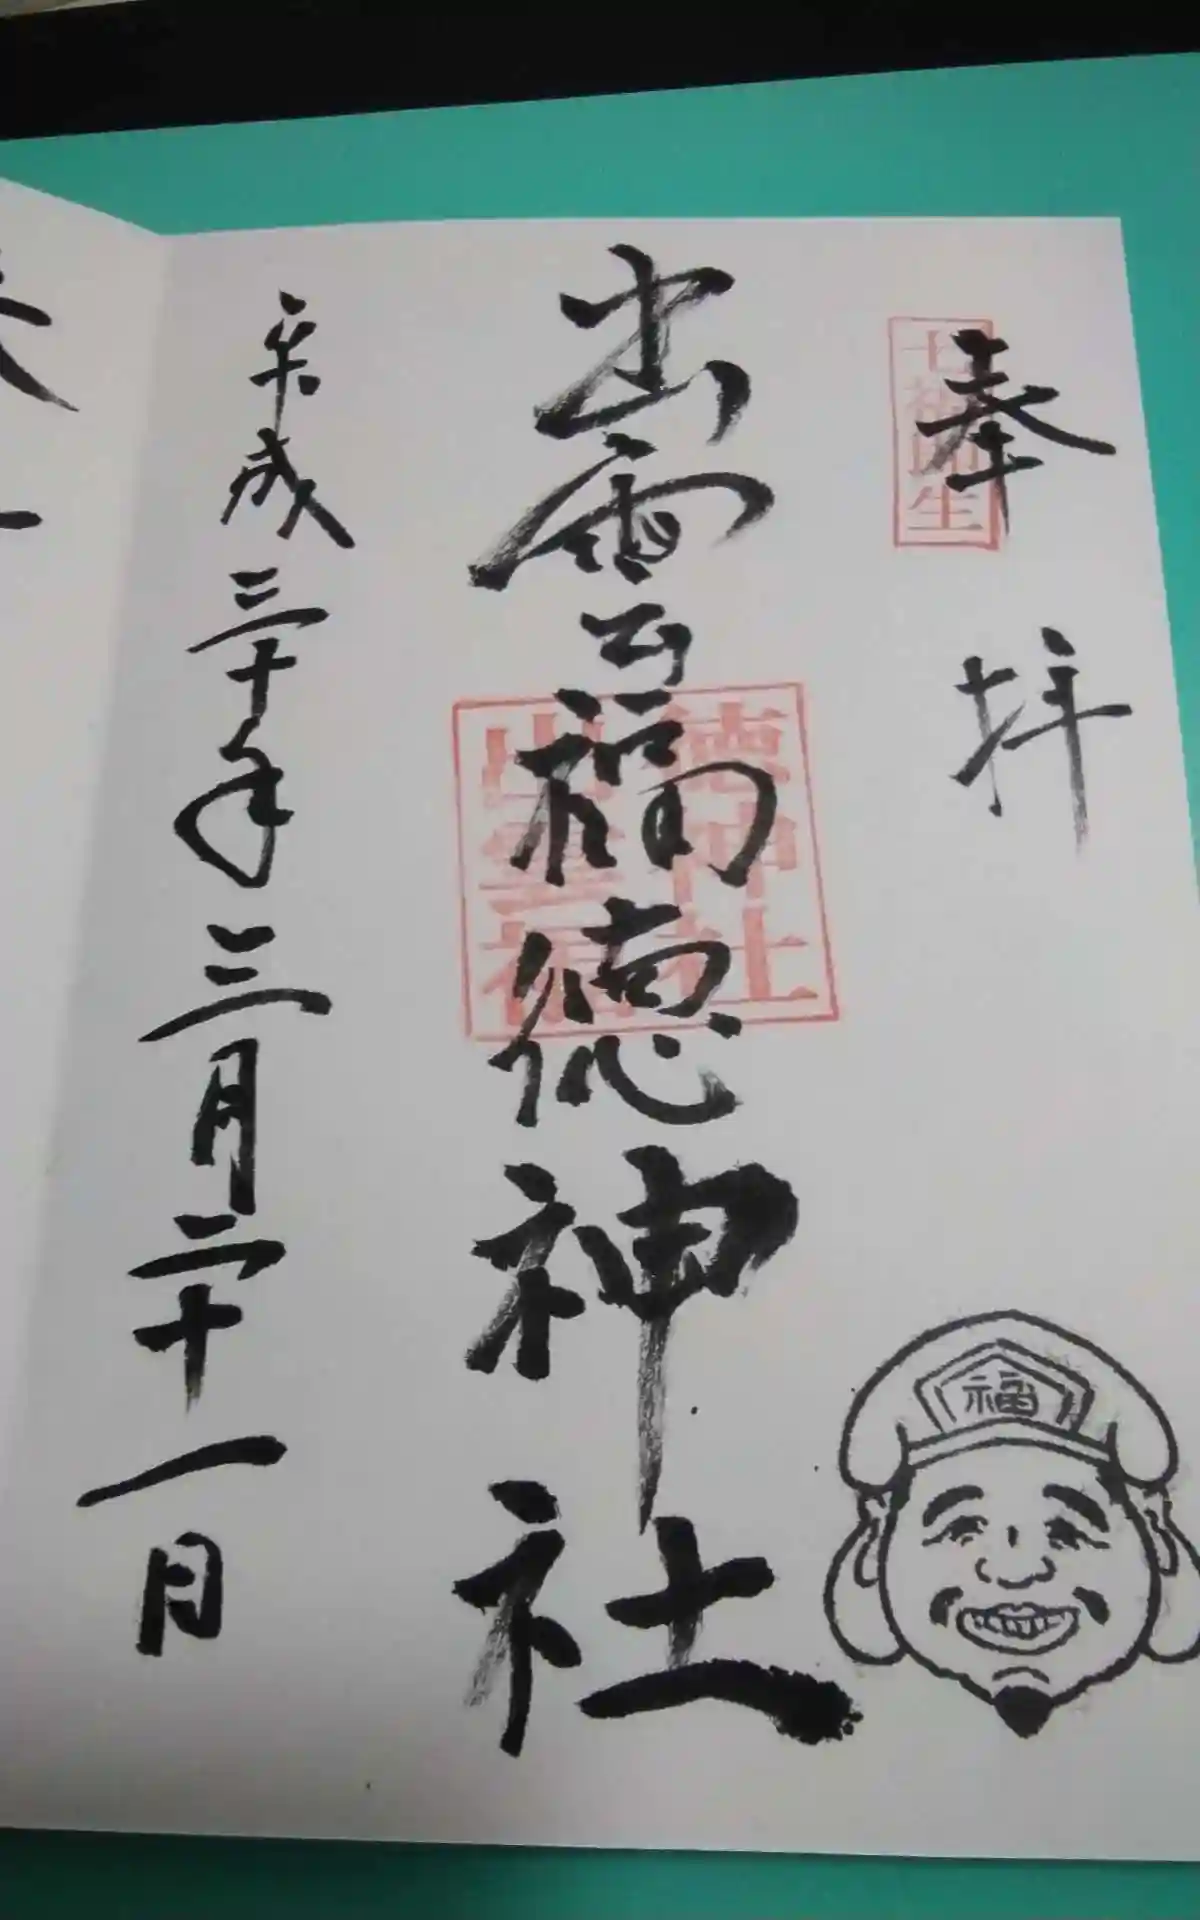 奉拝
出雲福徳神社
平成三十年三月二十一日
徳神社
出雲福
福